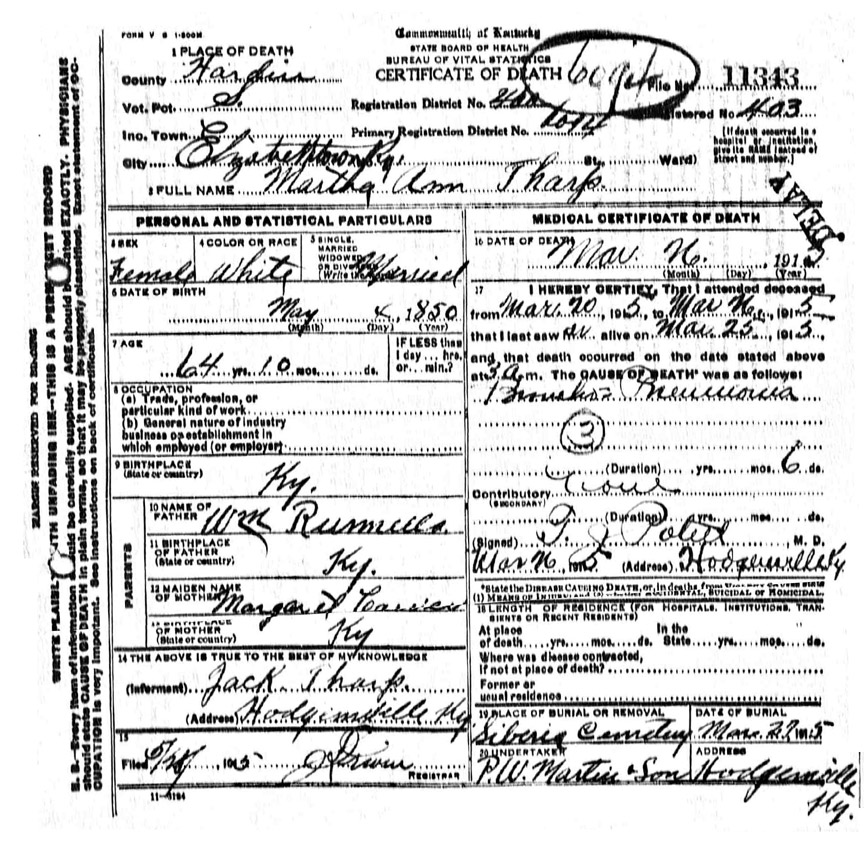 FORM V S 1-500M
Commonwealth of Kentucky
STATE BOARD OF HEALTH
BUREAU OF VITAL STATISTICS
CERTIFICATE OF DEATH
File No. 11343
1 PLACE OF DEATH
County Hardin
Vot. Pct. S.
Registration District No. 400
Registered No. 403
Inc. Town
Primary Registration District No.
City Elizabethtown Ky. St., Ward)
[If death occurred in a
hospital or institution,
give its NAME instead of
street and number.]
2 FULL NAME Martha Ann Tharp.
DELAY
PERSONAL AND STATISTICAL PARTICULARS
3 SEX
Female
4 COLOR OR RACE
White
5 SINGLE,
MARRIED
WIDOWED
OR DIVORCED
(Write the word)
Married
6 DATE OF BIRTH
May 4, 1850
(Month) (Day) (Year)
7 AGE
64 yrs. 10 mos. ds.
IF LESS than
1 day... hrs.
or... min.?
8 OCCUPATION
(a) Trade, profession, or
particular kind of work
(b) General nature of industry
business or establishment in
which employed (or employer)
9 BIRTHPLACE
(State or country)
Ky.
PARENTS
10 NAME OF
FATHER
Wm
11 BIRTHPLACE
OF FATHER
(State or country)
Ky.
12 MAIDEN NAME
OF MOTHER
Margaret
13 BIRTHPLACE
OF MOTHER
(State or country)
Ky
14 THE ABOVE IS TRUE TO THE BEST OF MY KNOWLEDGE
(Informant) Jack Tharp.
(Address) Hodgenville Ky.
15
Filed 1915
REGISTRAR
11-3184
MEDICAL CERTIFICATE OF DEATH
16 DATE OF DEATH
Mar. 26. 1915
(Month) (Day) (Year)
17 I HEREBY CERTIFY, That I attended deceased
from Mar. 20, 1915, to Mar 26, 1915
that I last saw alive on Mar. 25, 1915
and that death occurred on the date stated above
at 3 a m. The CAUSE OF DEATH* was as follows:
Broncho Pneumonia
3
(Duration) yrs. mos. 6 ds.
Contributory
(SECONDARY)
(Duration) yrs. mos. ds.
(Signed) M. D.
Mar 26, 1915 (Address) Hodgenville Ky.
*State the DISEASE CAUSING DEATH, or, in deaths from VIOLENT CAUSES state
(1) MEANS OF INJURY; and (2) whether ACCIDENTAL, SUICIDAL OR HOMICIDAL.
18 LENGTH OF RESIDENCE (FOR HOSPITALS, INSTITUTIONS, TRAN-
SIENTS OR RECENT RESIDENTS)
At place In the
of death....yrs....mos....ds. State....yrs....mos....ds.
Where was disease contracted,
if not at place of death?
Former or
usual residence
19 PLACE OF BURIAL OR REMOVAL
Siberia Cemetery
DATE OF BURIAL
Mar. 27, 1915
20 UNDERTAKER
P. W. Martin & Son
ADDRESS
Hodgenville
Ky.
MARGIN RESERVED FOR BINDING
WRITE PLAINLY WITH UNFADING INK—THIS IS A PERMANENT RECORD
N. B.—Every item of information should be carefully supplied. AGE should be stated EXACTLY. PHYSICIANS
should state CAUSE OF DEATH in plain terms, so that it may be properly classified. Exact statement of OC-
CUPATION is very important. See instructions on back of certificate.